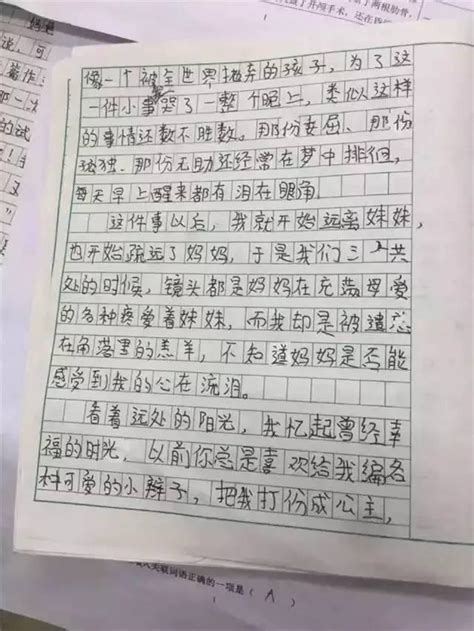 了两根肋骨，
做了开颅手术，还在昏
妈妈
谈，可
著作：
那一次
的试
像一个被全世界抛弃的孩子，为了这
一件小事哭了一整个晚上，类似这样
的事情还数不胜数。那份委屈、那份
孤独、那份无助还经常在梦中徘徊，
每天早上醒来都有泪在眼角。
这件事以后，我就开始远离妹妹，
也开始疏远了妈妈，于是我们三人共
处的时候，镜头都是妈妈在充满母爱
的各种疼爱着妹妹，而我却是被遗忘
在角落里的羔羊，不知道妈妈是否能
感受到我的心在流泪。
看着远处的阳光，我忆起曾经幸
福的时光，以前你总是喜欢给我编各
种可爱的小辫子，把我打份成公主，
入关联词语正确的一项是（ A ）